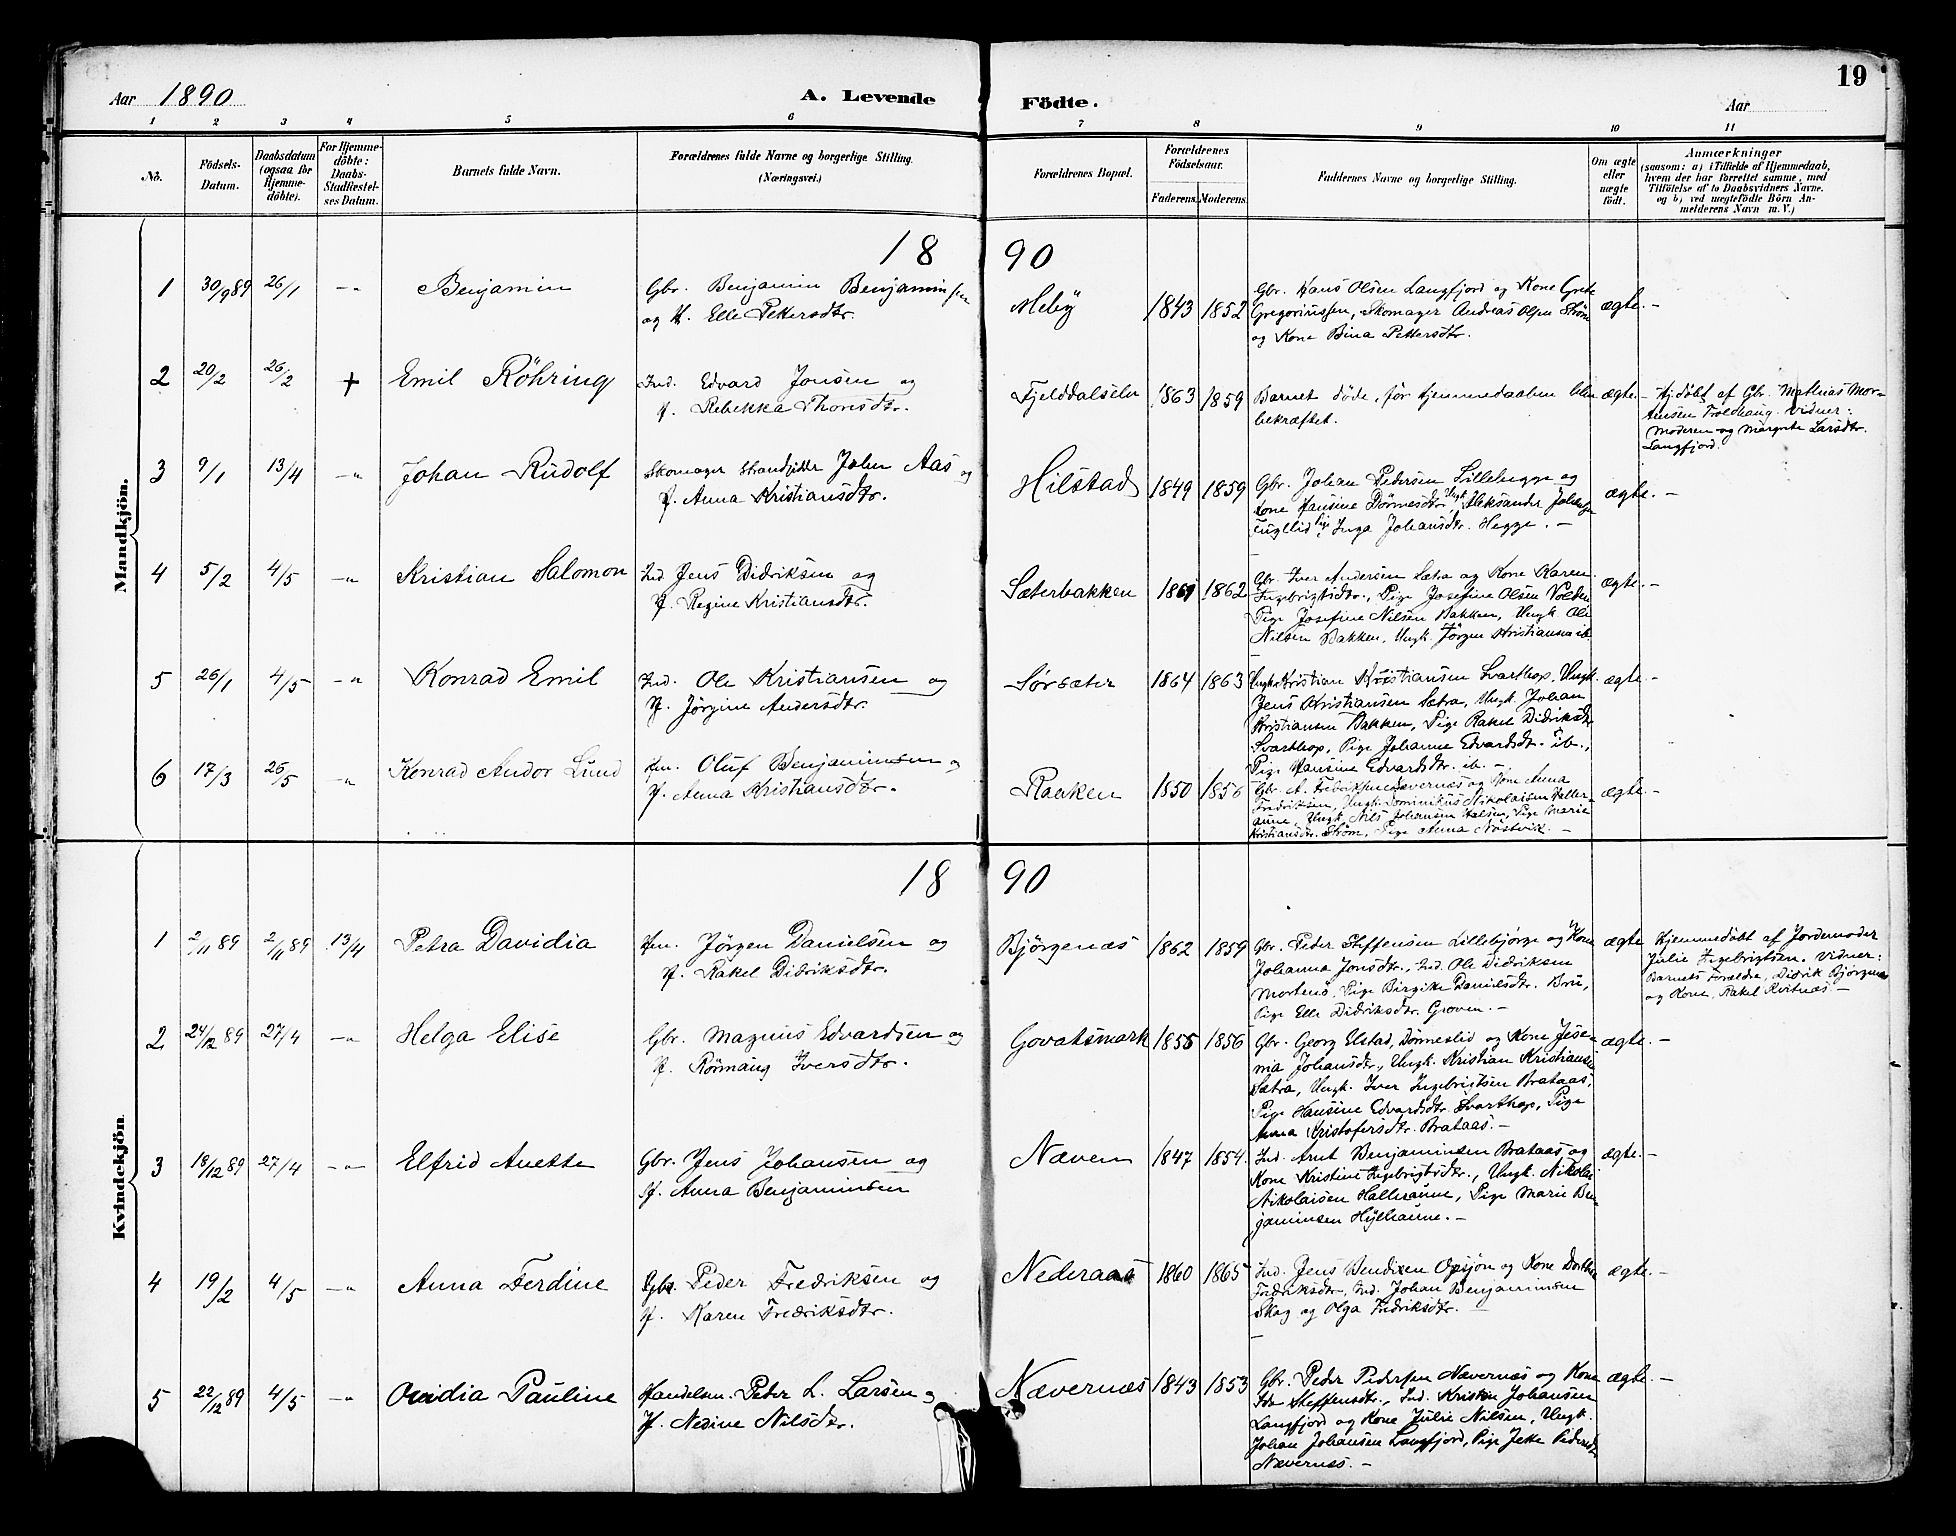 19
Aar 1890 A. Levende Födte. Aar
1 2 3 4 5 6 7 8 9 10 11
No. Födsels-Datum. Daabsdatum (ogsaa for Hjemme-döbte). For Hjemme-döbte: Daabs-Stadfæstel-ses Datum. Barnets fulde Navn. Forældrenes fulde Navne og borgerlige Stilling. (Næringsvei.) Forældrenes Bopæl. Forældrenes Födselsaar. Faderens. Moderens. Faddernes Navne og borgerlige Stilling. Om ægte eller uægte födt. Anmærkninger (saasom: a) i Tilfælde af Hjemmedaab, hvem der har forrettet samme, med Tilföielse af to Daabsvidners Navne. og b) ved uegtefödte Börn An-melderens Navn m. V.)
Mandkjön.
18 90
1 30/9 89 26/1 -"- Benjamin Gbr. Benjamin Benjaminsen Meby 1843 1852 Gbr. Hans Olsen Langfjord og Kone Grete ægte. -
og H. Elle Pettersdtr. Gregoriussen, Skomager Andreas Olsen Strøm
og Kone Bina Pettersdtr.
2 20/2 26/2 + Emil Röhring Ind. Edvard Jonsen og Fjelddalselv 1863 1859 Barnet döde, för Hjemmedaaben blev ægte. - Hjdöbt af Gbr. Mathias Mor-
H. Rebekka Thorisdtr. bekræftet. tinsen Troldhaug. Vidner:
Moderen og Margrete Larsdtr.
Langfjord.
3 9/1 13/4 -"- Johan Rudolf Skomager Strandsidder John Aas og Hilstad 1849 1859 Gbr. Johan Pedersen Lillehegge og ægte. -
H. Anna Kristiansdtr. Kone Hansine Dörmesdtr, Ungk. Aleksander
Fugllid, Pige Inga Johansdtr. Hegge. -
4 5/2 4/5 -"- Kristian Salomon Ind Jens Didriksen og Sæterbakken 1861 1862 Gbr. Iver Andersen Sætra og Kone Karen ægte. -
H. Regine Kristiansdtr. Ingebrigtsdtr., Pige Josefine Olsen Volden
Pige Josefine Nilsen Bakken, Ungk. Ole
Nilsen Bakken, Ungk. Jörgen Kristiansen ib.
5 26/1 4/5 -"- Konrad Emil Ind. Ole Kristiansen og Sörsæter 1864 1863 Ungk. Kristian Kristiansen Svarthop, Ungk. ægte. -
H. Jörgine Andersdtr. Jens Kristiansen Sætra, Ungk. Johan
Kristiansen Bakken, Pige Rakel Didriksdtr
Svarthop, Pige Johanne Edvardsdtr. ib.,
Pige Hansine Edvardsdtr. ib. -
6 17/3 26/5 -"- Konrad Andor Lund Hm. Oluf Benjaminsen og Raaken 1850 1856 Gbr. A. Fredriksen Nævernæs og Kone Anna ægte. -
H. Anna Kristiansdtr. Fredriksen, Ungk. Dominikus Nikolaisen Haller-
aune, Ungk. Nils Johansen Halsen, Pige Marie
Kristiansdtr. Ström, Pige Anna Nöstvik. -
Kvindekjön
18 90
1 2/11 89 2/11 89 13/4 Petra Davidia Hm. Jörgen Danielsen og Björgenæs 1862 1859 Gbr. Peder Steffensen Lillebjörge og Kone ægte Hjemmedöbt af Jordemoder
H. Rakel Didriksdtr. Johanna Jonsdtr., Ind. Ole Didriksen Julie Ingebrigtsen. Vidner:
Mortens, Pige Birgitte Danielsdtr. Bru, Barnets Forældre, Didrik Björgenæs
Pige Elle Didriksdtr. Groven. - og Kone, Rakel Kvitnæs. -
2 24/12 89 27/4 -"- Helga Elise Gbr. Magnus Edvardsen og Govatsmark 1855 1856 Gbr. Georg Elstad, Dönneslid og Kone Jese- ægte. -
H. Rönnaug Iversdtr. mia Johansdtr, Ungk. Kristian Kristiansen
Sætra, Ungk. Iver Ingebrigtsen Brataas,
Pige Hansine Edvardsdtr Svarthop, Pige
Anna Kristofersdtr. Brataas. -
3 18/12 89 27/4 -"- Elfrid Anette Gbr. Jens Johansen og Næven 1847 1854. Ind. Arnt Benjaminsen Brataas og ægte. -
H. Anna Benjaminsen Kone Kristine Ingebrigtsdtr., Ungk. Nikolai
Nikolaisen Halleraune, Pige Marie Ben-
jaminsen Hylhaune. -
4 19/2 4/5 -"- Anna Ferdine Gbr Peder Fredriksen og Nederaas 1860 1865 Ind. Jens Bendixen Opsjön og Kone Dorthea ægte. -
H. Karen Fredriksdtr. Fredriksdtr, Ind. Johan Benjaminsen
Skag og Olga Fredriksdtr. -
5 22/12 89 4/5 -"- Ovidia Pauline Handelsm. Peter L. Larsen og Nævernæs 1843 1853 Gbr. Peder Pedersen Nævernæs og Kone ægte. -
H. Nedine Nilsdtr. Ida Steffensdtr., Ind. Kristen Johansen
Langfjord og Kone Julie Nilsen, Ungk.
Johan Johansen Langfjord, Pige Jette Pedersdtr
Nævernæs. -